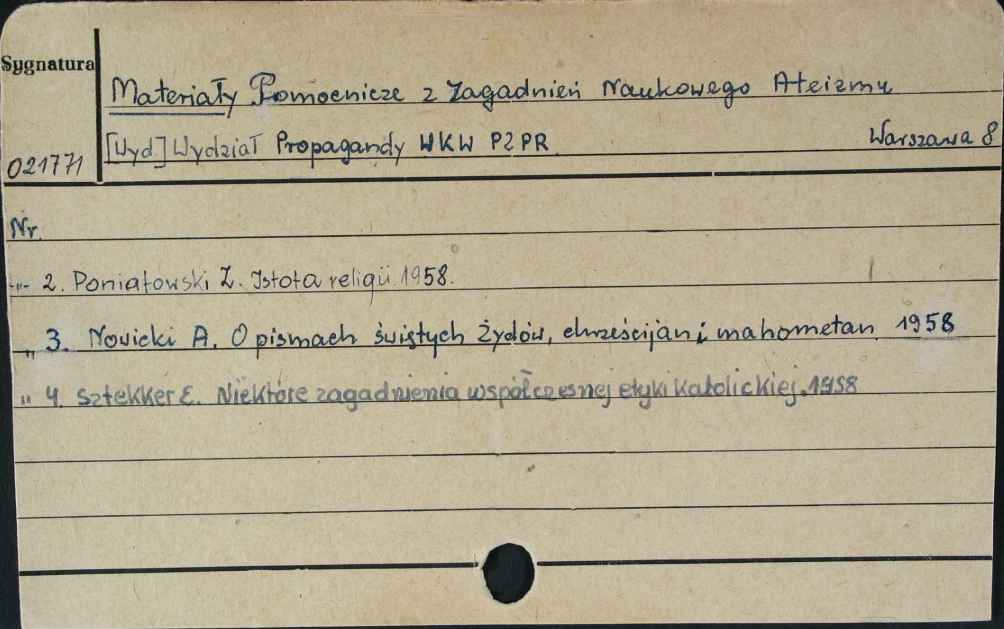 Sygnatura
Materiały Pomocnicze z Zagadnień Naukowego Ateizmu
[Wyd.] Wydział Propagandy WKW PZPR Warszawa 8
021771
Nr.
-"- 2. Poniatowski Z. Istota religii. 1958.
" 3. Nowicki A. O pismach świętych żydów, chrześcijan i mahometan. 1958
" 4. Sztekker E. Niektóre zagadnienia współczesnej etyki katolickiej. 1958